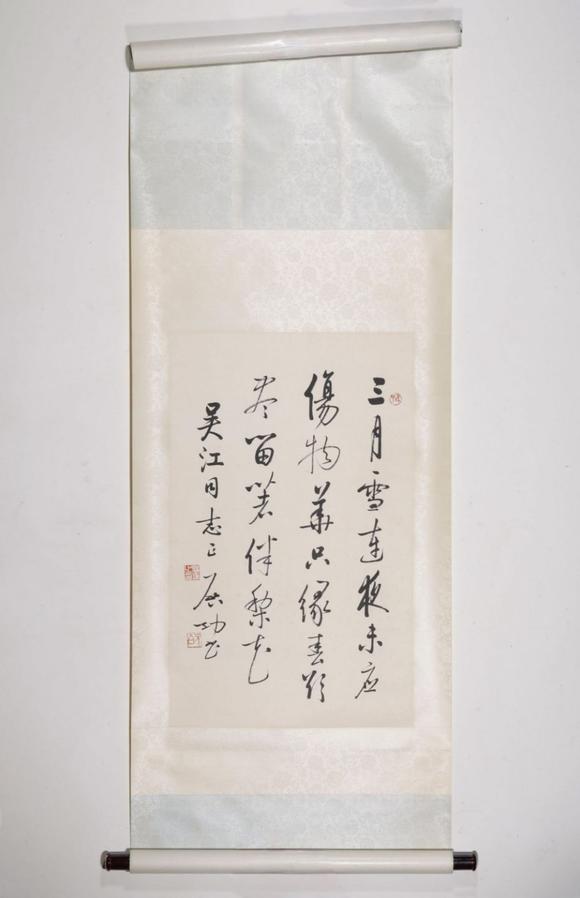 三月雪连夜未应
傷物華只緣春欲
尽留著伴梨花
吴江同志正 启功书